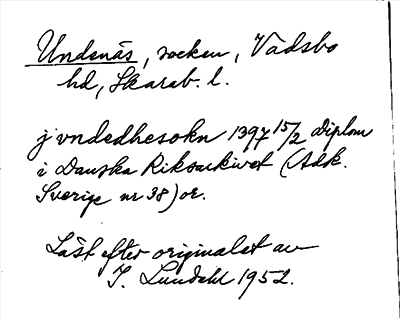 Undenäs, socken, Vadsbo
hd, Skarab. l.
j vndedhesokn 1397 15/2 diplom
i Danska Riksarkivet (Adk.
Sverige nr 38) or.
Läst efter originalet av
I. Lundahl 1952.